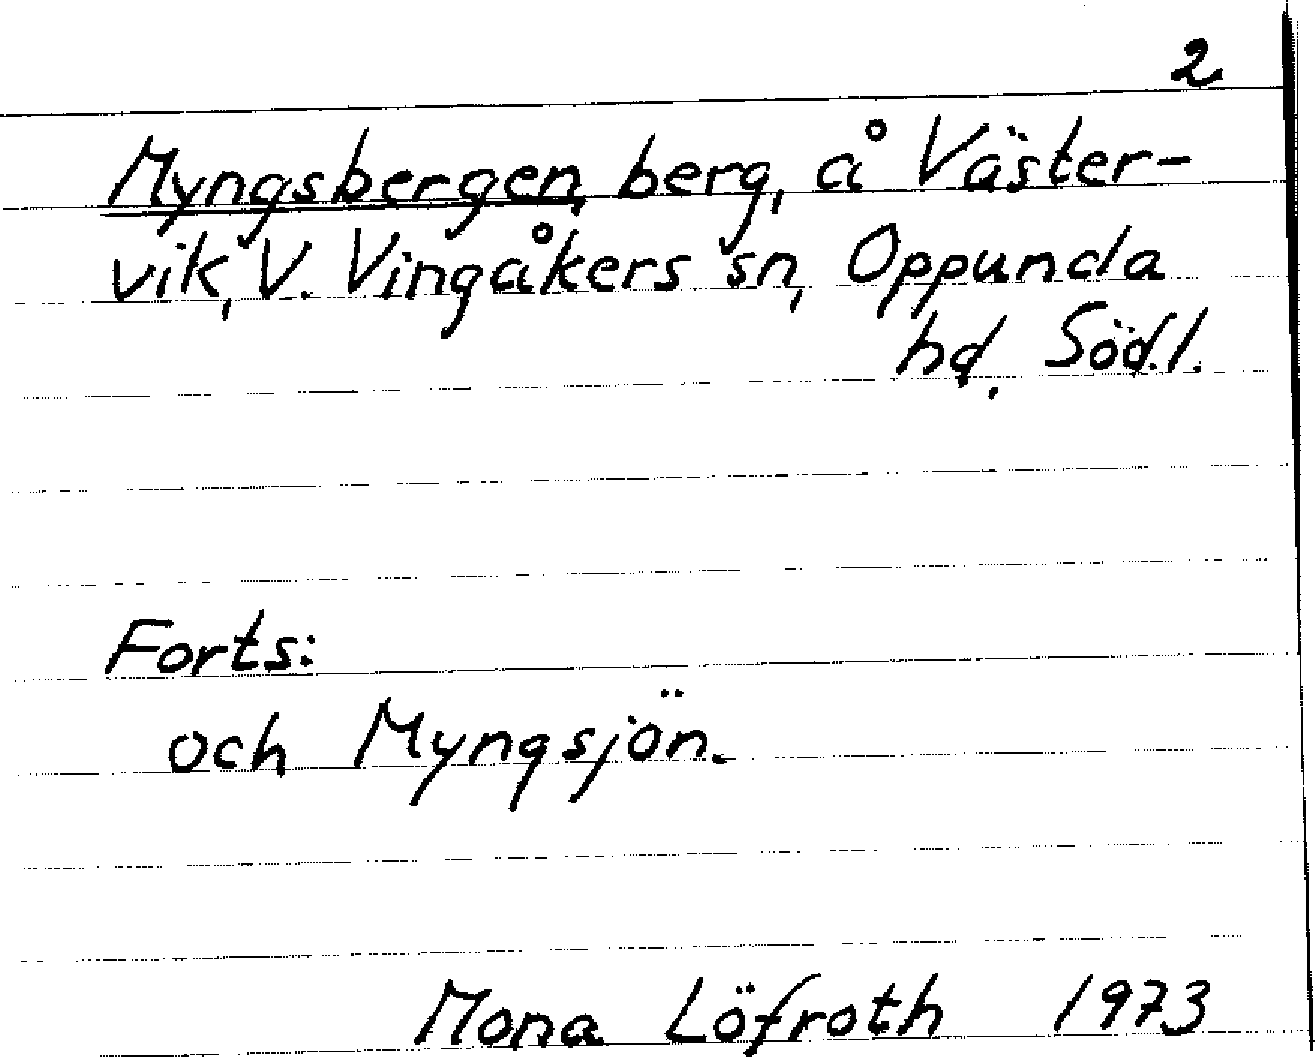 2
Myngsbergen, berg, å Väster-
vik, V. Vingåkers sn, Oppunda
hd, Söd.l.
Forts:
och Myngsjön.
Mona Löfroth 1973